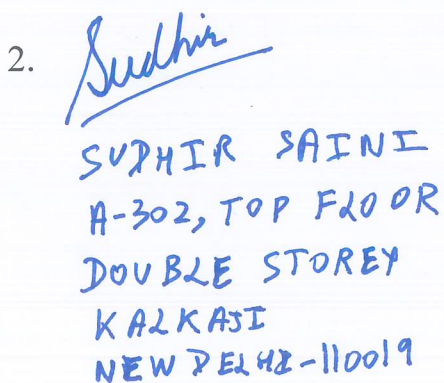 2. Sudhir
SUDHIR SAINI
A-302, TOP FLOOR
DOUBLE STOREY
KALKAJI
NEW DELHI-110019